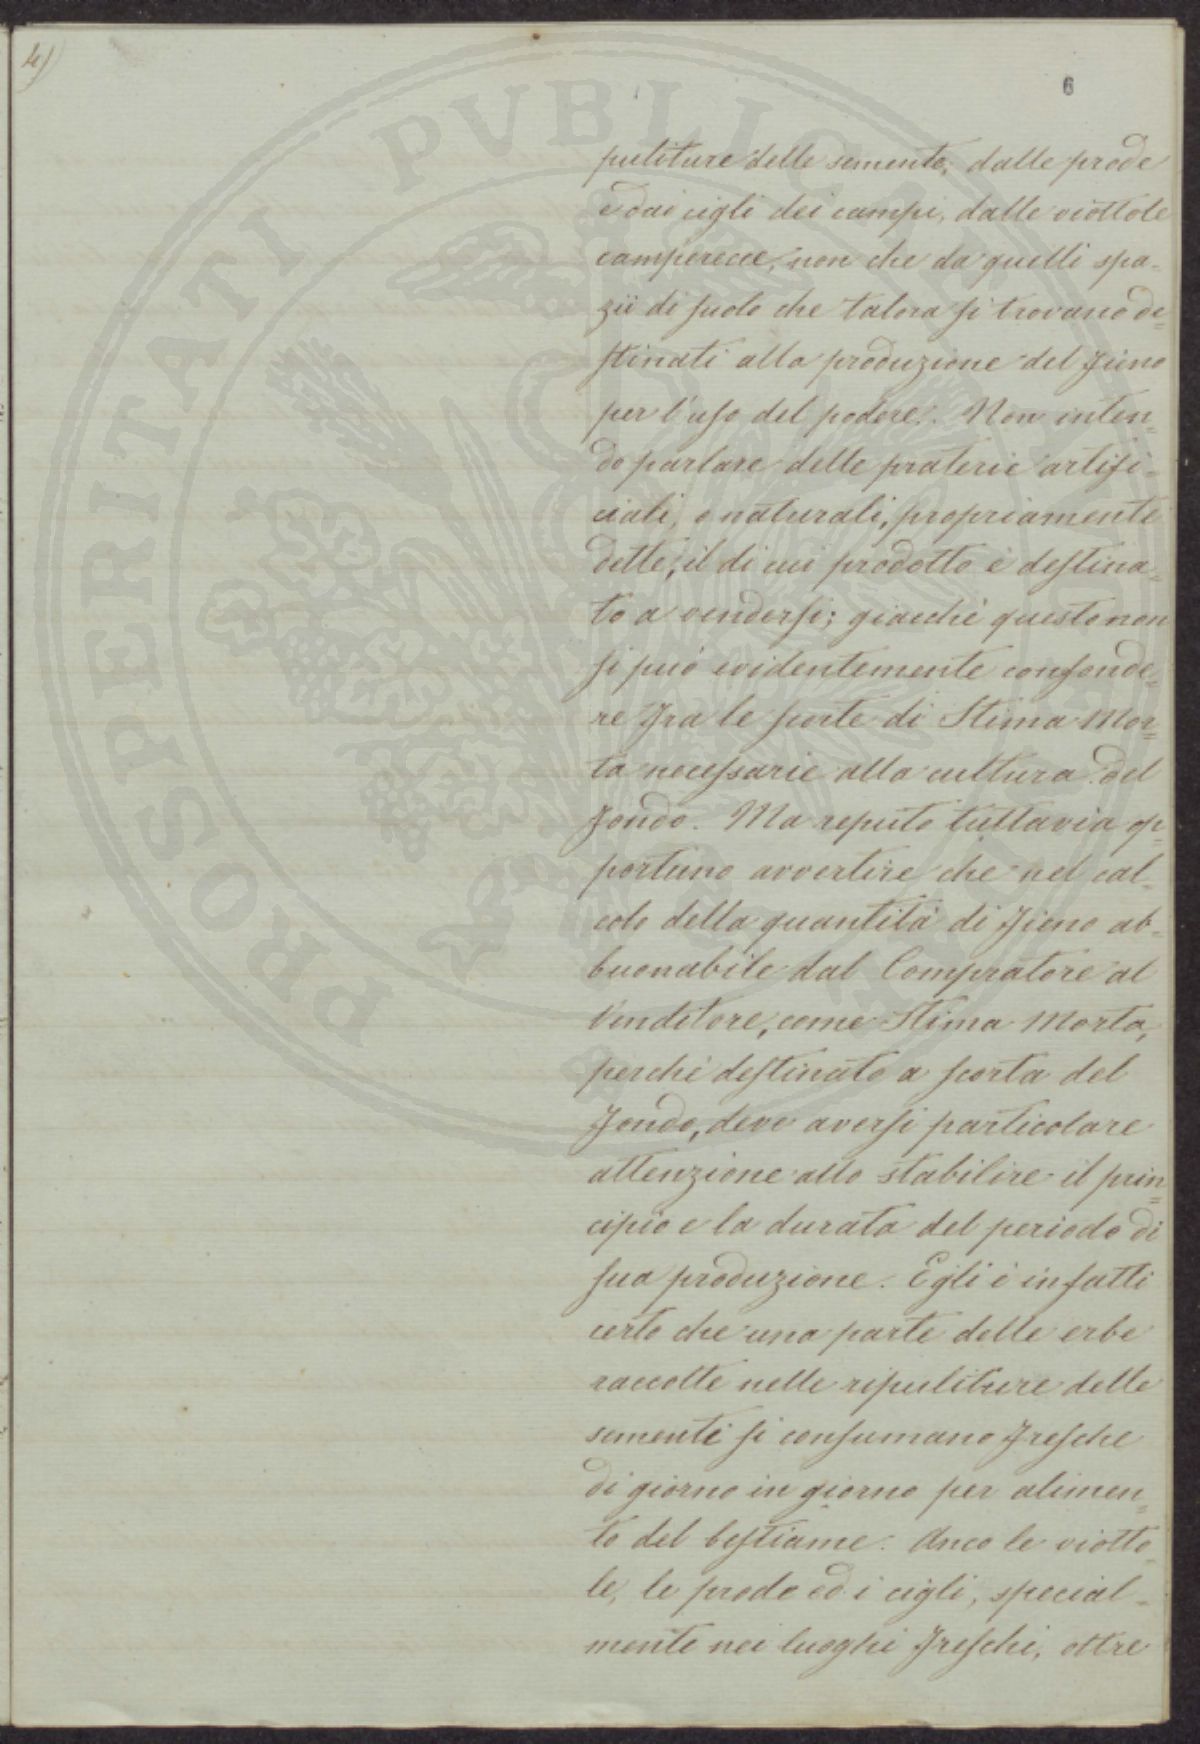 4)
6
PROSPERITATI PVBLICAE
puliture delle semente, dalle prode
e dai cigli dei campi, dalle viottole
camperecce, non che da quelli spa-
zii di suolo che talora si trovano de=
stinati alla produzione del fieno
per l'uso del podere. Non inten=
do parlare delle praterie artifi-
ciali, o naturali, propriamente
dette, il di cui prodotto è destina=
to a vendersi; giacchè questo non
si può evidentemente confonde=
re fra le scorte di Stima Mor=
ta necessarie alla cultura del
fondo. Ma reputo tuttavia op=
portuno avvertire che nel cal-
colo della quantità di fieno ab-
buonabile dal Compratore al
Venditore, come Stima Morta,
perchè destinato a scorta del
fondo, deve aversi particolare
attenzione allo stabilire il prin=
cipio e la durata del periodo di
sua produzione. Egli è infatti
certo che una parte delle erbe
raccolte nelle ripuliture delle
sementi si consumano fresche
di giorno in giorno per alimen=
to del bestiame. Anco le viotto-
le, le prode ed i cigli, special-
mente nei luoghi freschi, oltre